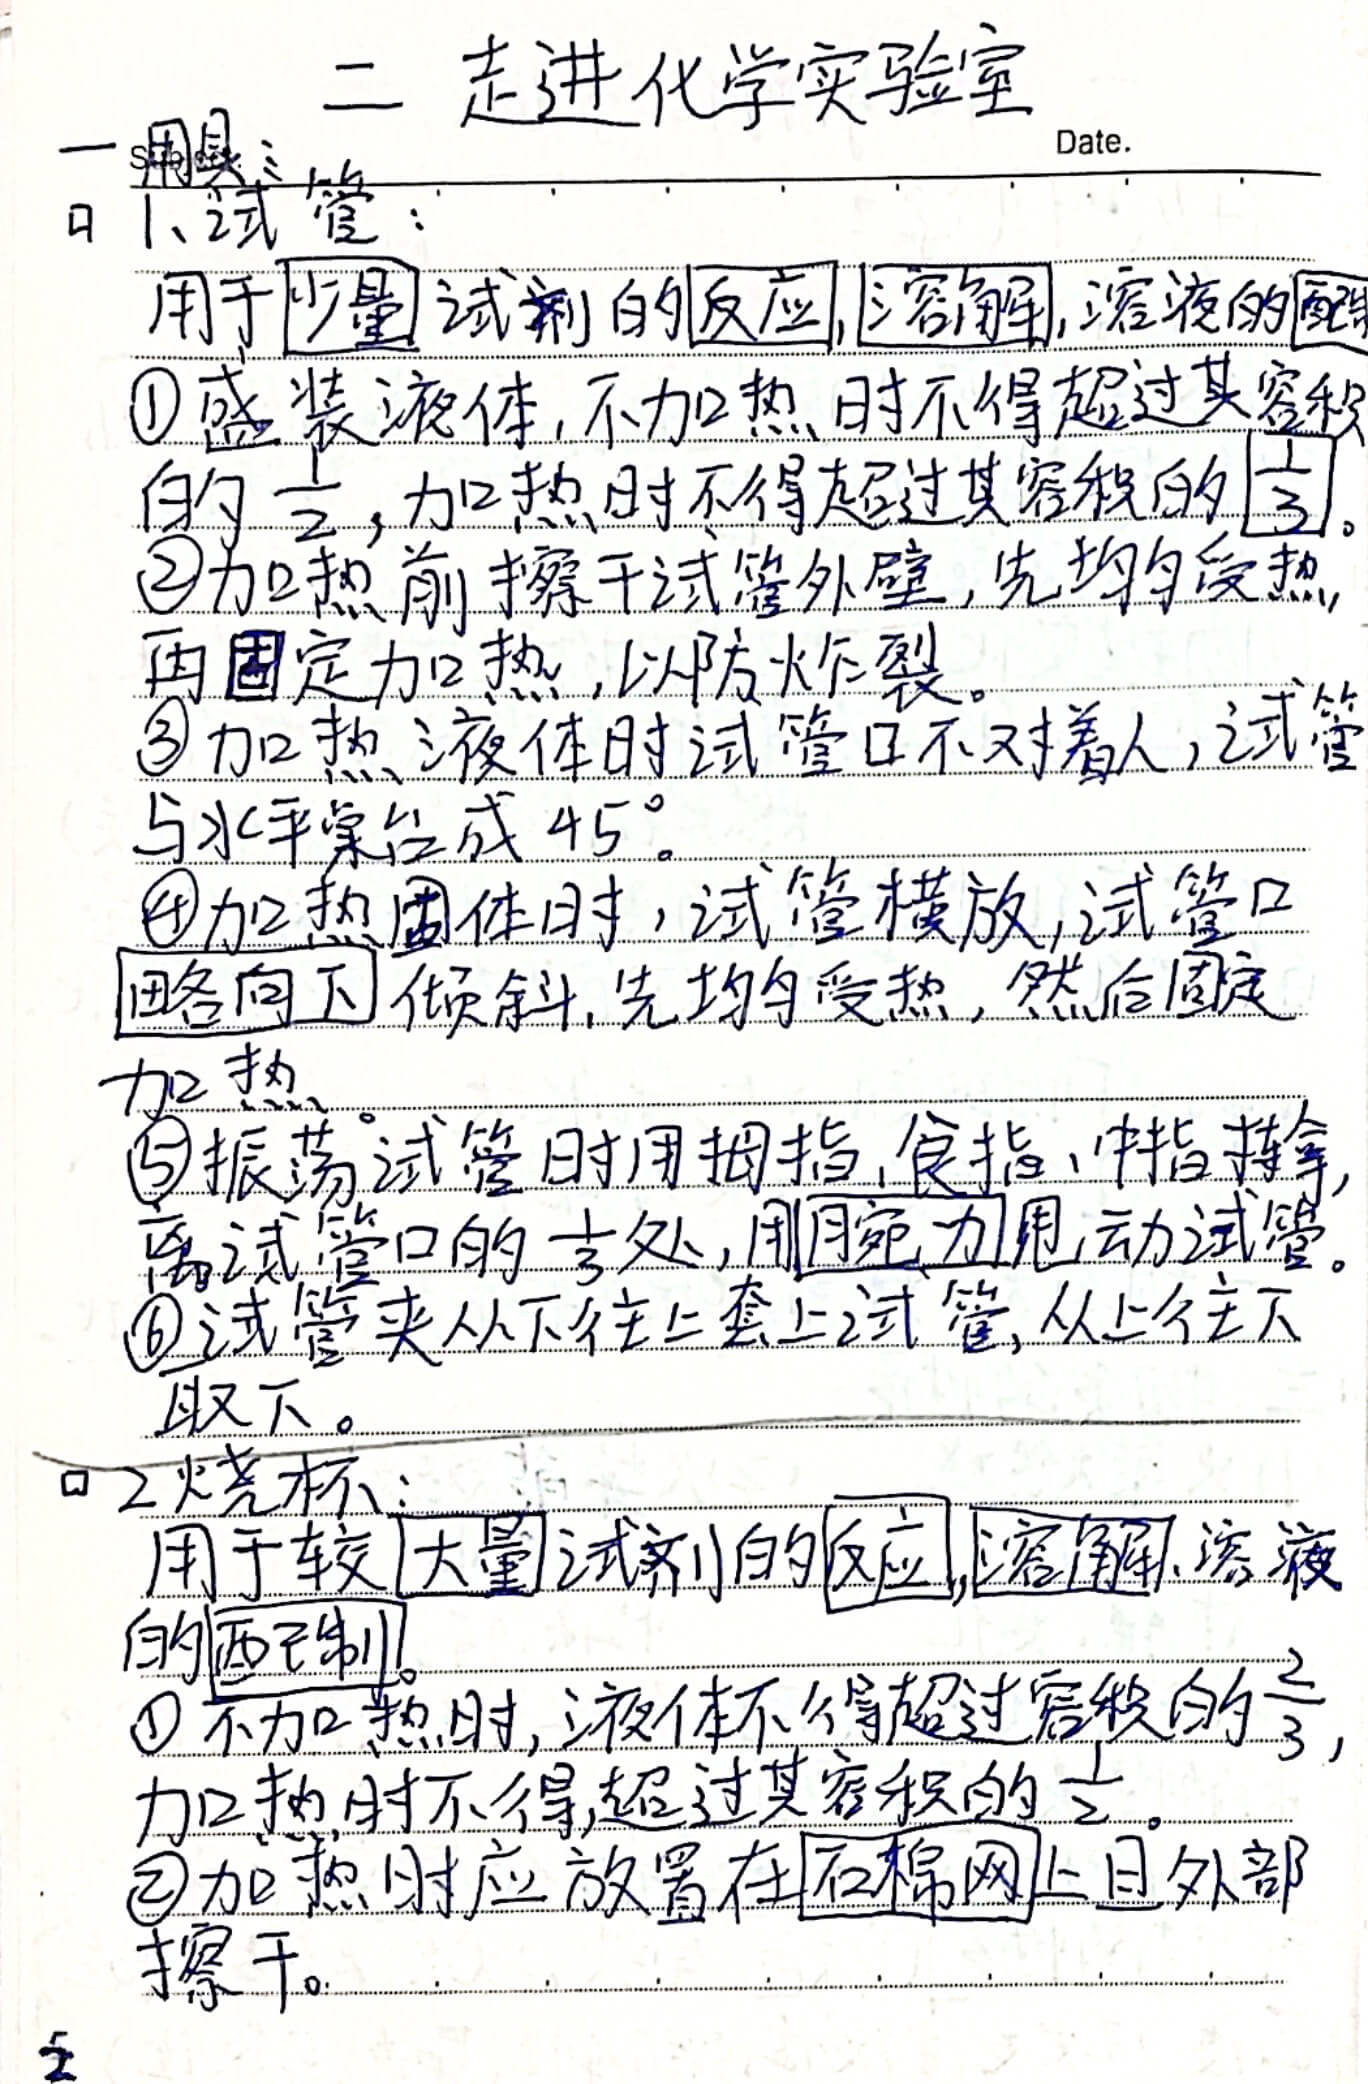 二 走进化学实验室
Date.
一 用具:
口 1、试管:
用于少量试剂的反应,溶解,溶液的配制
①盛装液体,不加热时不得超过其容积
的1/2,加热时不得超过其容积的1/3。
②加热前擦干试管外壁,先均匀受热,
再固定加热,以防炸裂。
③加热液体时试管口不对着人,试管
与水平桌台成45°。
④加热固体时,试管横放,试管口
略向下倾斜,先均匀受热,然后固定
加热。
⑤振荡试管时用拇指、食指、中指拿,
离试管口的1/3处,用腕力甩动试管。
⑥试管夹从下往上套上试管,从上往下
取下。
口 2烧杯:
用于较大量试剂的反应,溶解、溶液
的配制。
①不加热时,液体不得超过容积的2/3,
加热时不得超过其容积的1/2。
②加热时应放置在石棉网上且外部
擦干。